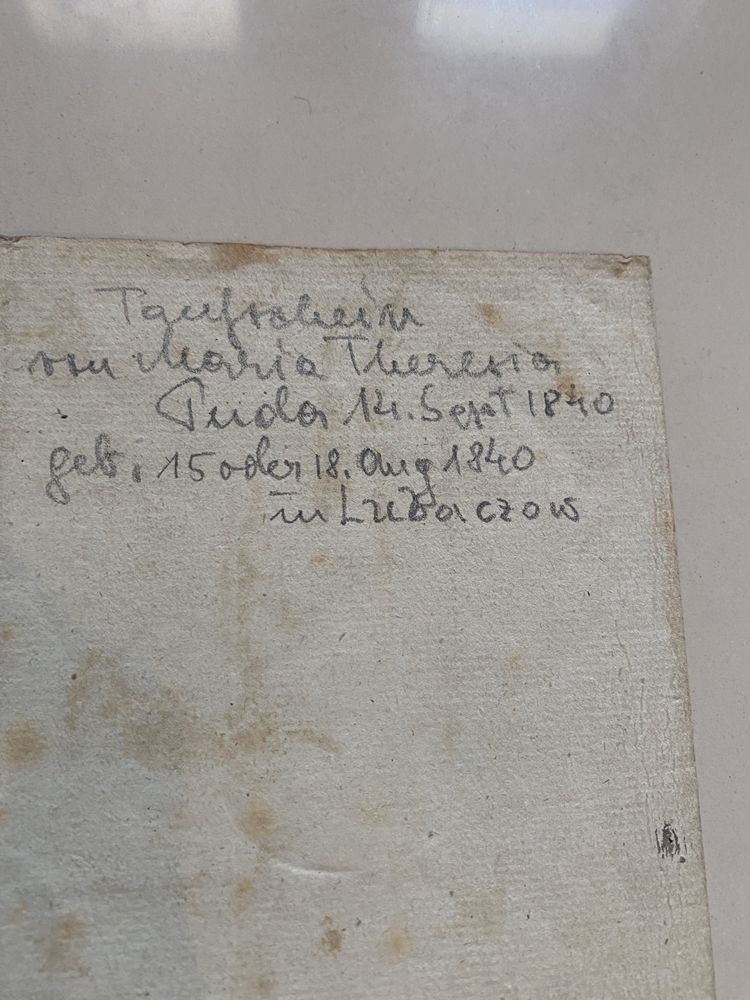 Taufschein
von Maria Theresia
14. Sept 1840
geb. 15 oder 18. Aug 1840
in Lubaczow